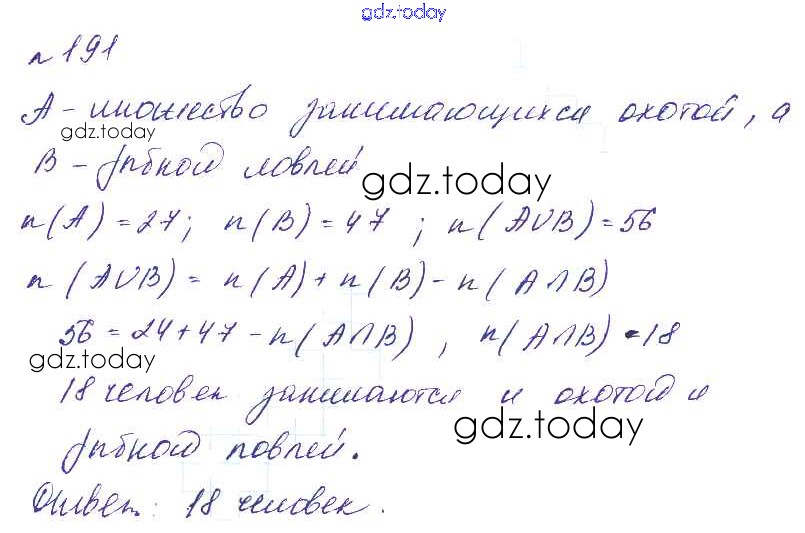 gdz.today
№ 191
A – множество занимающихся охотой, а
gdz.today
B – рыбной ловлей
gdz.today
n(A) = 27; n(B) = 47 ; n(A∪B) = 56
n(A∪B) = n(A) + n(B) - n(A∩B)
56 = 24 + 47 - n(A∩B) , n(A∩B) = 18
gdz.today
18 человек занимаются и охотой и
gdz.today
рыбной ловлей.
Ответ: 18 человек.